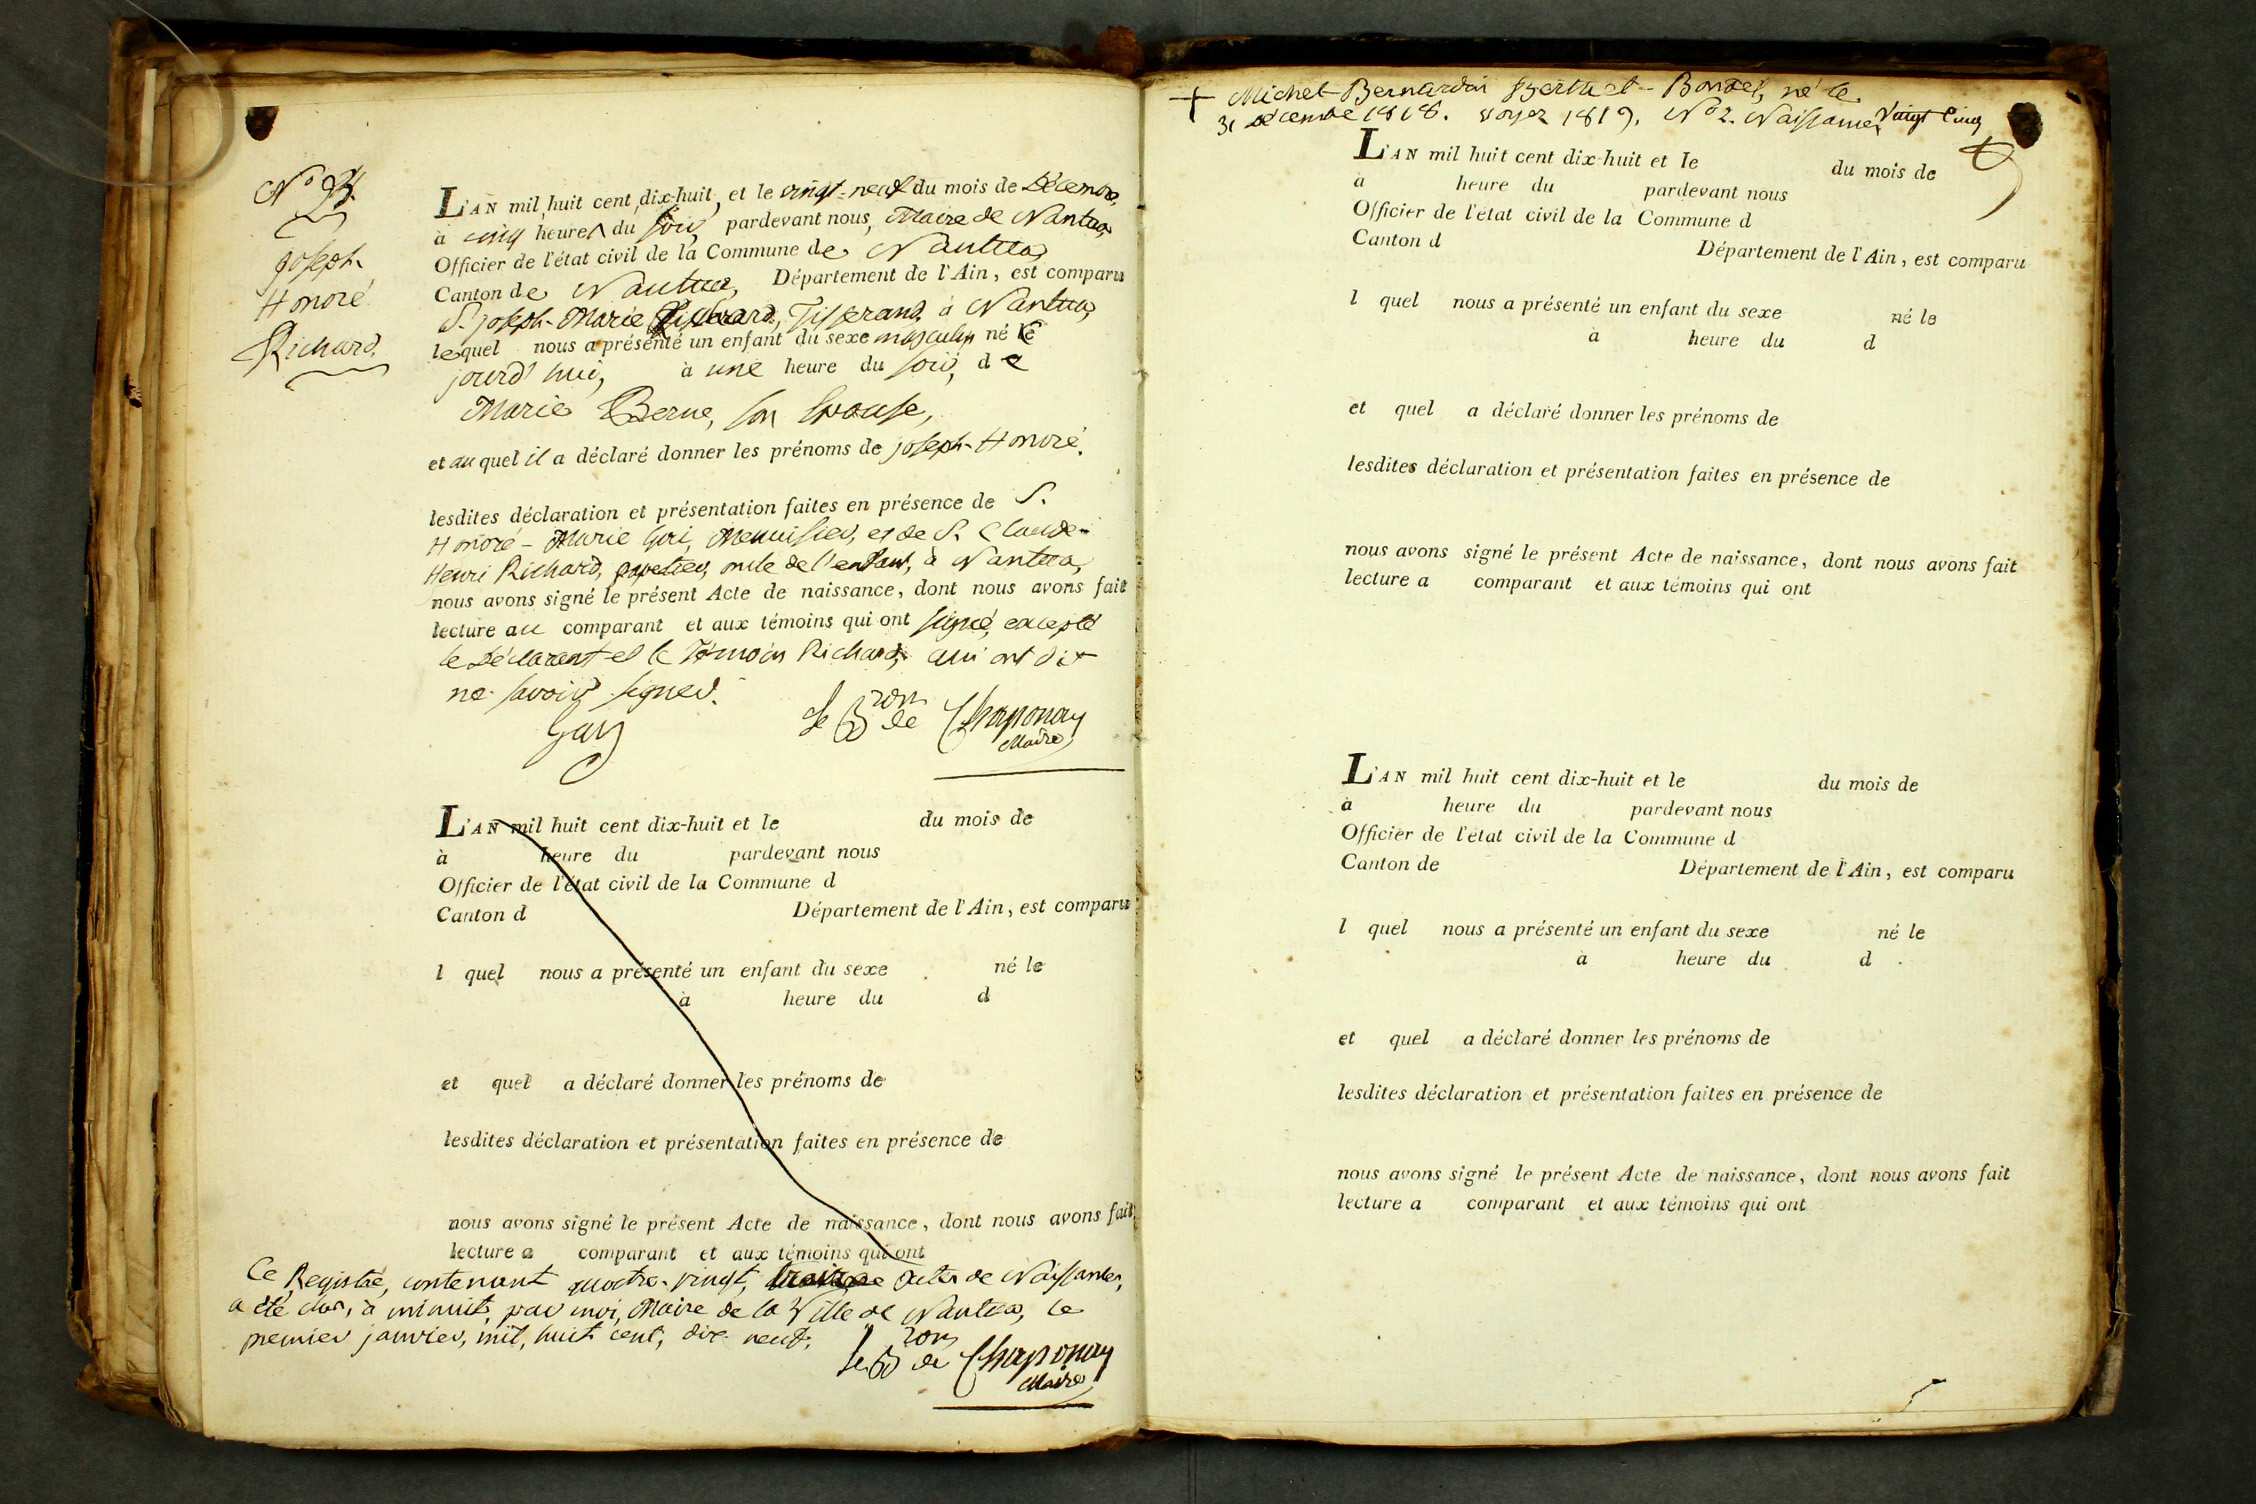 Joseph-
Honoré
Richard.
L'AN mil huit cent dix-huit, et le vingt-neuf du mois de Décembre,
à cinq heures du soir, pardevant nous, Maire de Nantua,
Officier de l'état civil de la Commune de Nantua,
Canton de Nantua, Département de l'Ain, est comparu
S. Joseph-Marie Richard, Tisserand, à Nantua,
lequel nous a présenté un enfant du sexe masculin né ce
jourd'hui, à une heure du soir, de
Marie Berne, son Epouse,
et auquel il a déclaré donner les prénoms de Joseph-Honoré.
lesdites déclaration et présentation faites en présence de S.
Honoré-Marie Menuisier, et de S. Claude-
Henri Richard, papetier, oncle de l'enfant, à Nantua,
nous avons signé le présent Acte de naissance, dont nous avons fait
lecture au comparant et aux témoins qui ont signé, excepté
le Déclarant et le Témoin Richard, qui ont dit
ne savoir signer.
Le Bron de Chaponay
Maire
L'AN mil huit cent dix-huit et le du mois de
à heure du pardevant nous
Officier de l'état civil de la Commune d
Canton d Département de l'Ain, est comparu
l quel nous a présenté un enfant du sexe né le
à heure du d
et quel a déclaré donner les prénoms de
lesdites déclaration et présentation faites en présence de
nous avons signé le présent Acte de naissance, dont nous avons fait
lecture a comparant et aux témoins qui ont
Ce Registre, contenant quatre-vingt, treize actes de Naissances,
a été clos, à minuit, par moi, Maire de la Ville de Nantua, le
premier janvier, mil, huit cent, dix-neuf.
Le Bron de Chaponay
Maire
+ Michel-Bernardin Berthet-Bondet, né le
31 Décembre 1818. voyez 1819. N° 2. Naissances
Vingt Cinq
L'AN mil huit cent dix-huit et le du mois de
à heure du pardevant nous
Officier de l'état civil de la Commune d
Canton d Département de l'Ain, est comparu
l quel nous a présenté un enfant du sexe né le
à heure du d
et quel a déclaré donner les prénoms de
lesdites déclaration et présentation faites en présence de
nous avons signé le présent Acte de naissance, dont nous avons fait
lecture a comparant et aux témoins qui ont
L'AN mil huit cent dix-huit et le du mois de
à heure du pardevant nous
Officier de l'état civil de la Commune d
Canton de Département de l'Ain, est comparu
l quel nous a présenté un enfant du sexe né le
à heure du d
et quel a déclaré donner les prénoms de
lesdites déclaration et présentation faites en présence de
nous avons signé le présent Acte de naissance, dont nous avons fait
lecture a comparant et aux témoins qui ont